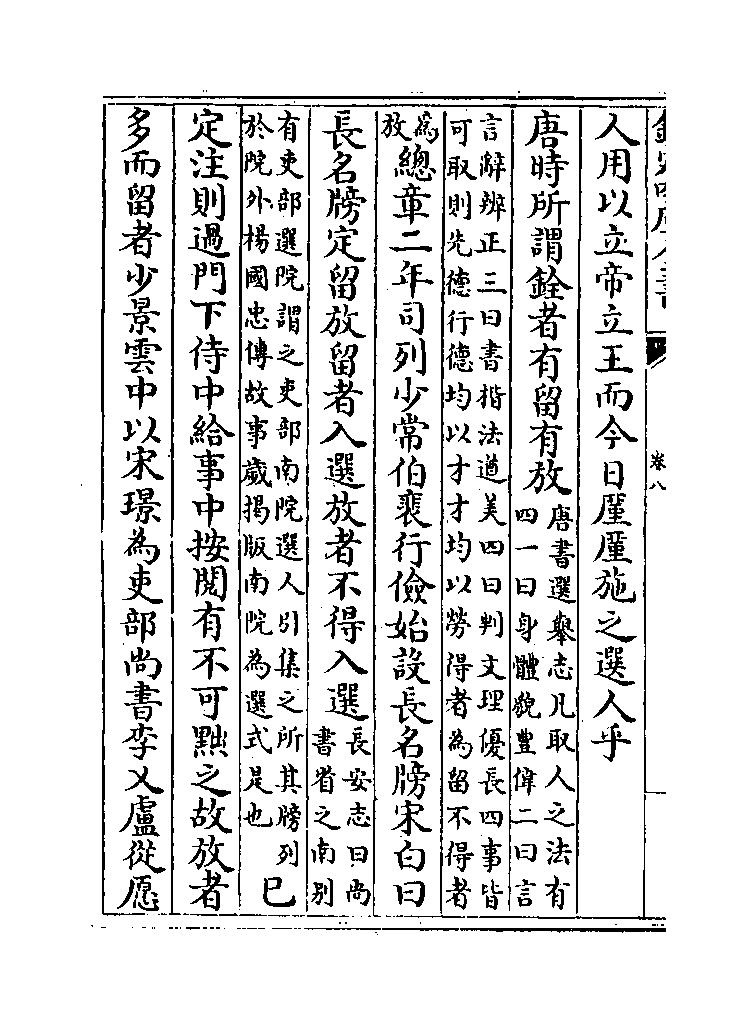 卷八
人用以立帝立王而今日厪厪施之選人乎
唐時所謂銓者有留有放
唐書選舉志凡取人之法有
四一曰身體貌豐偉二曰言
言辭辨正三曰書楷法遒美四曰判文理優長四事皆
可取則先德行德均以才才均以勞得者為留不得者
為
放
總章二年司列少常伯裴行儉始設長名牓宋白曰
長名牓定留放留者入選放者不得入選
長安志曰尚
書省之南别
有吏部選院謂之吏部南院選人引集之所其牓列
於院外楊國忠傳故事歲揭版南院為選式是也
已
定注則過門下侍中給事中按閱有不可黜之故放者
多而留者少景雲中以宋璟為吏部尚書李乂盧從愿